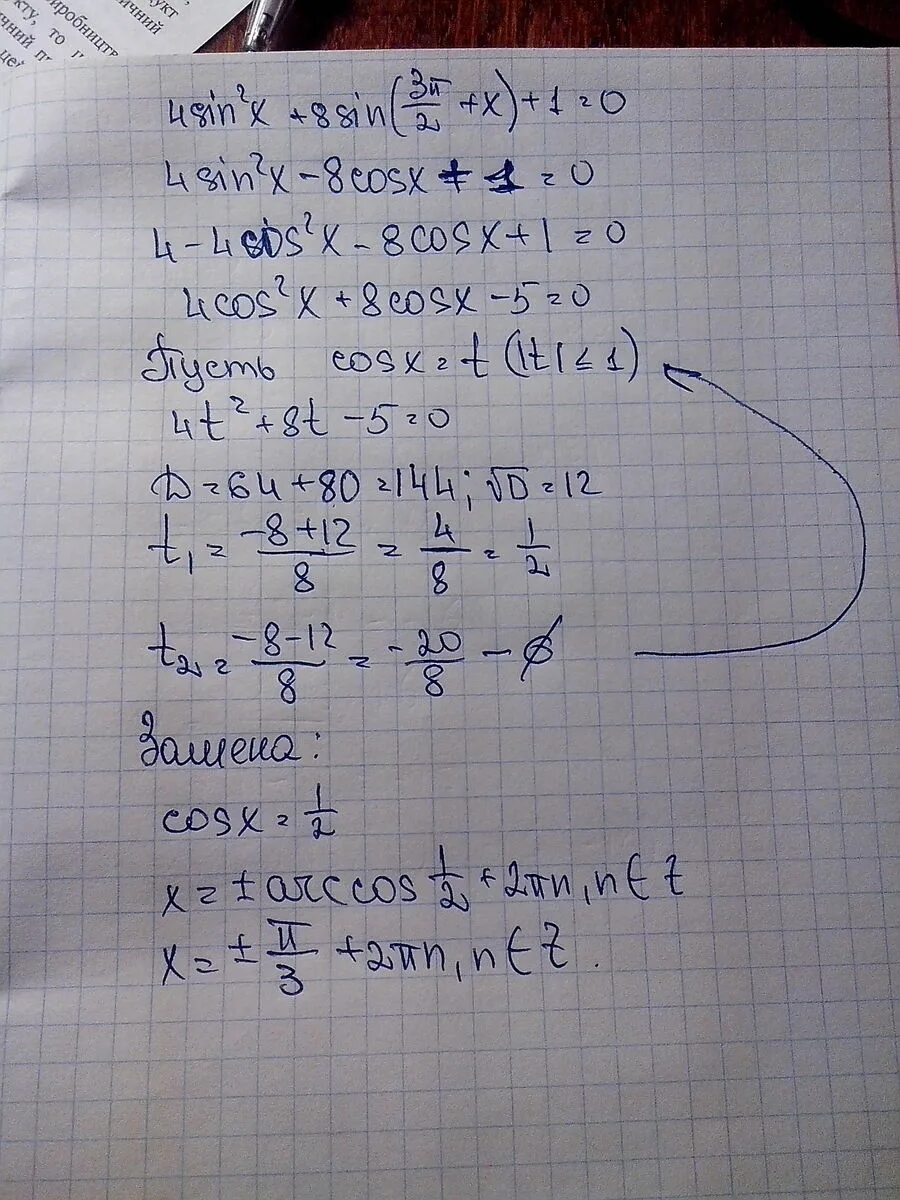 укт
виробництв
ичний
кту, то
чний п
цей
4sin²x + 8sin(3π/2 + x) + 1 = 0
4sin²x - 8cosx + 1 = 0
4 - 4cos²x - 8cosx + 1 = 0
4cos²x + 8cosx - 5 = 0
Пусть cosx = t (|t| ≤ 1)
4t² + 8t - 5 = 0
D = 64 + 80 = 144; √D = 12
t₁ = (-8+12)/8 = 4/8 = 1/2
t₂ = (-8-12)/8 = -20/8 - ∅
Замена:
cosx = 1/2
x = ± arccos 1/2 + 2πn, n ∈ Z
x = ± π/3 + 2πn, n ∈ Z.